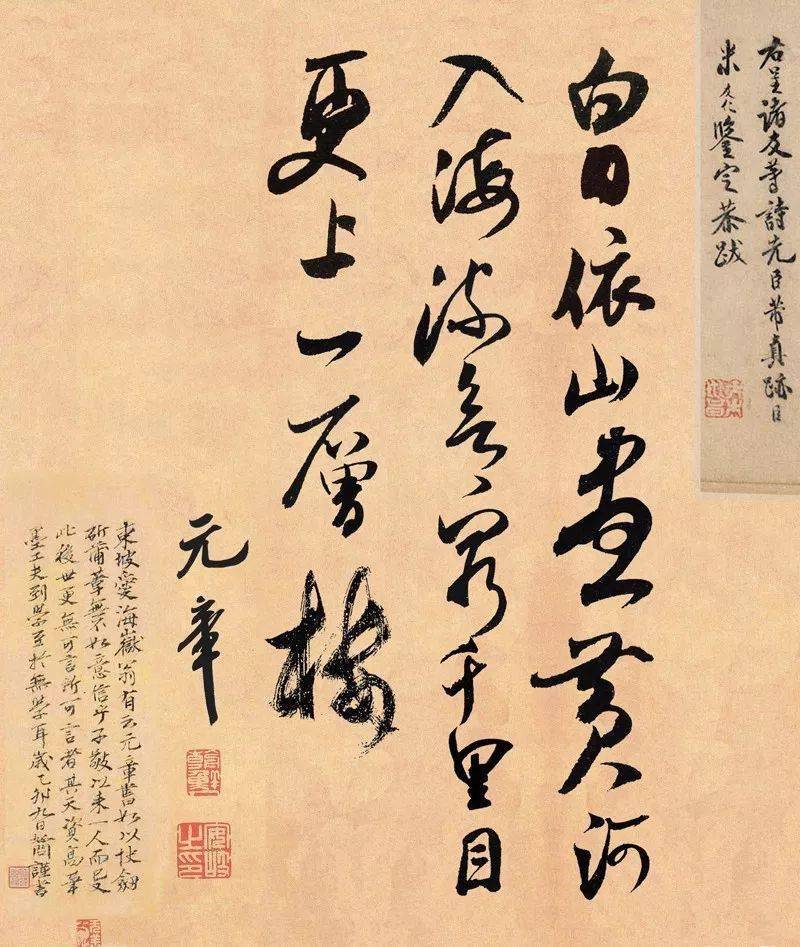 右呈諸友等詩先臣芾真跡臣
米友仁鑒定恭跋
白日依山盡黄河
入海流欲窮千里目
更上一層樓
元章
東坡愛海嶽翁有云元章書如以快劍
斫蒲葦無不如意信乎子敬以来一人而已
此後世更無可言所可言者其天資高筆
墨工夫到學至於無學耳歲乙卯九日謹書